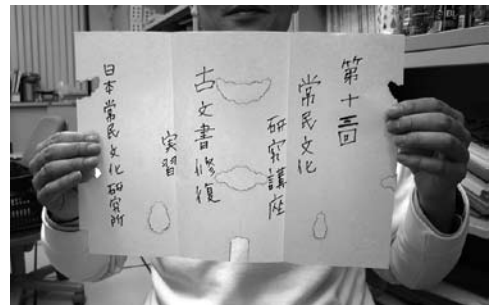 第十三回
常民文化
研究講座
古文書修復
実習
日本常民文化研究所